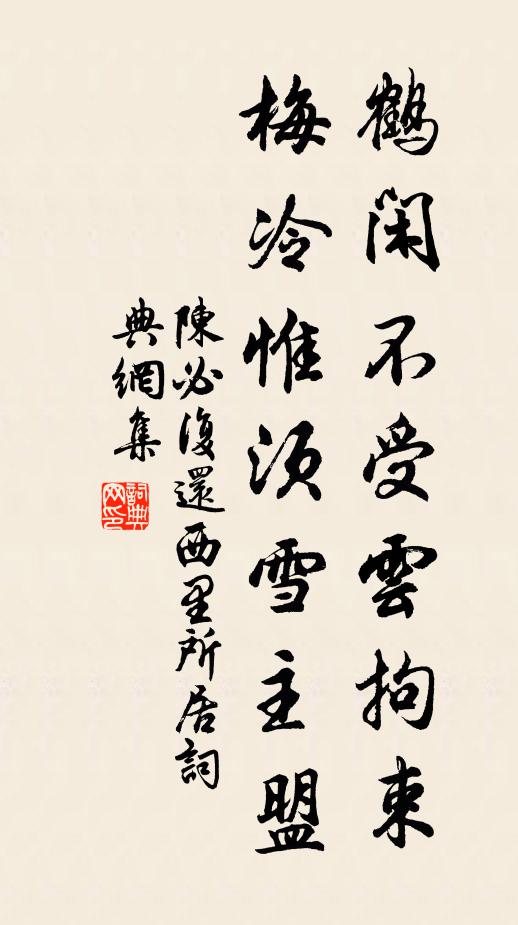 鶴閑不受雲拘束
梅冷惟須雪主盟
陳必復還西里所居詞
典網集
詞典网印